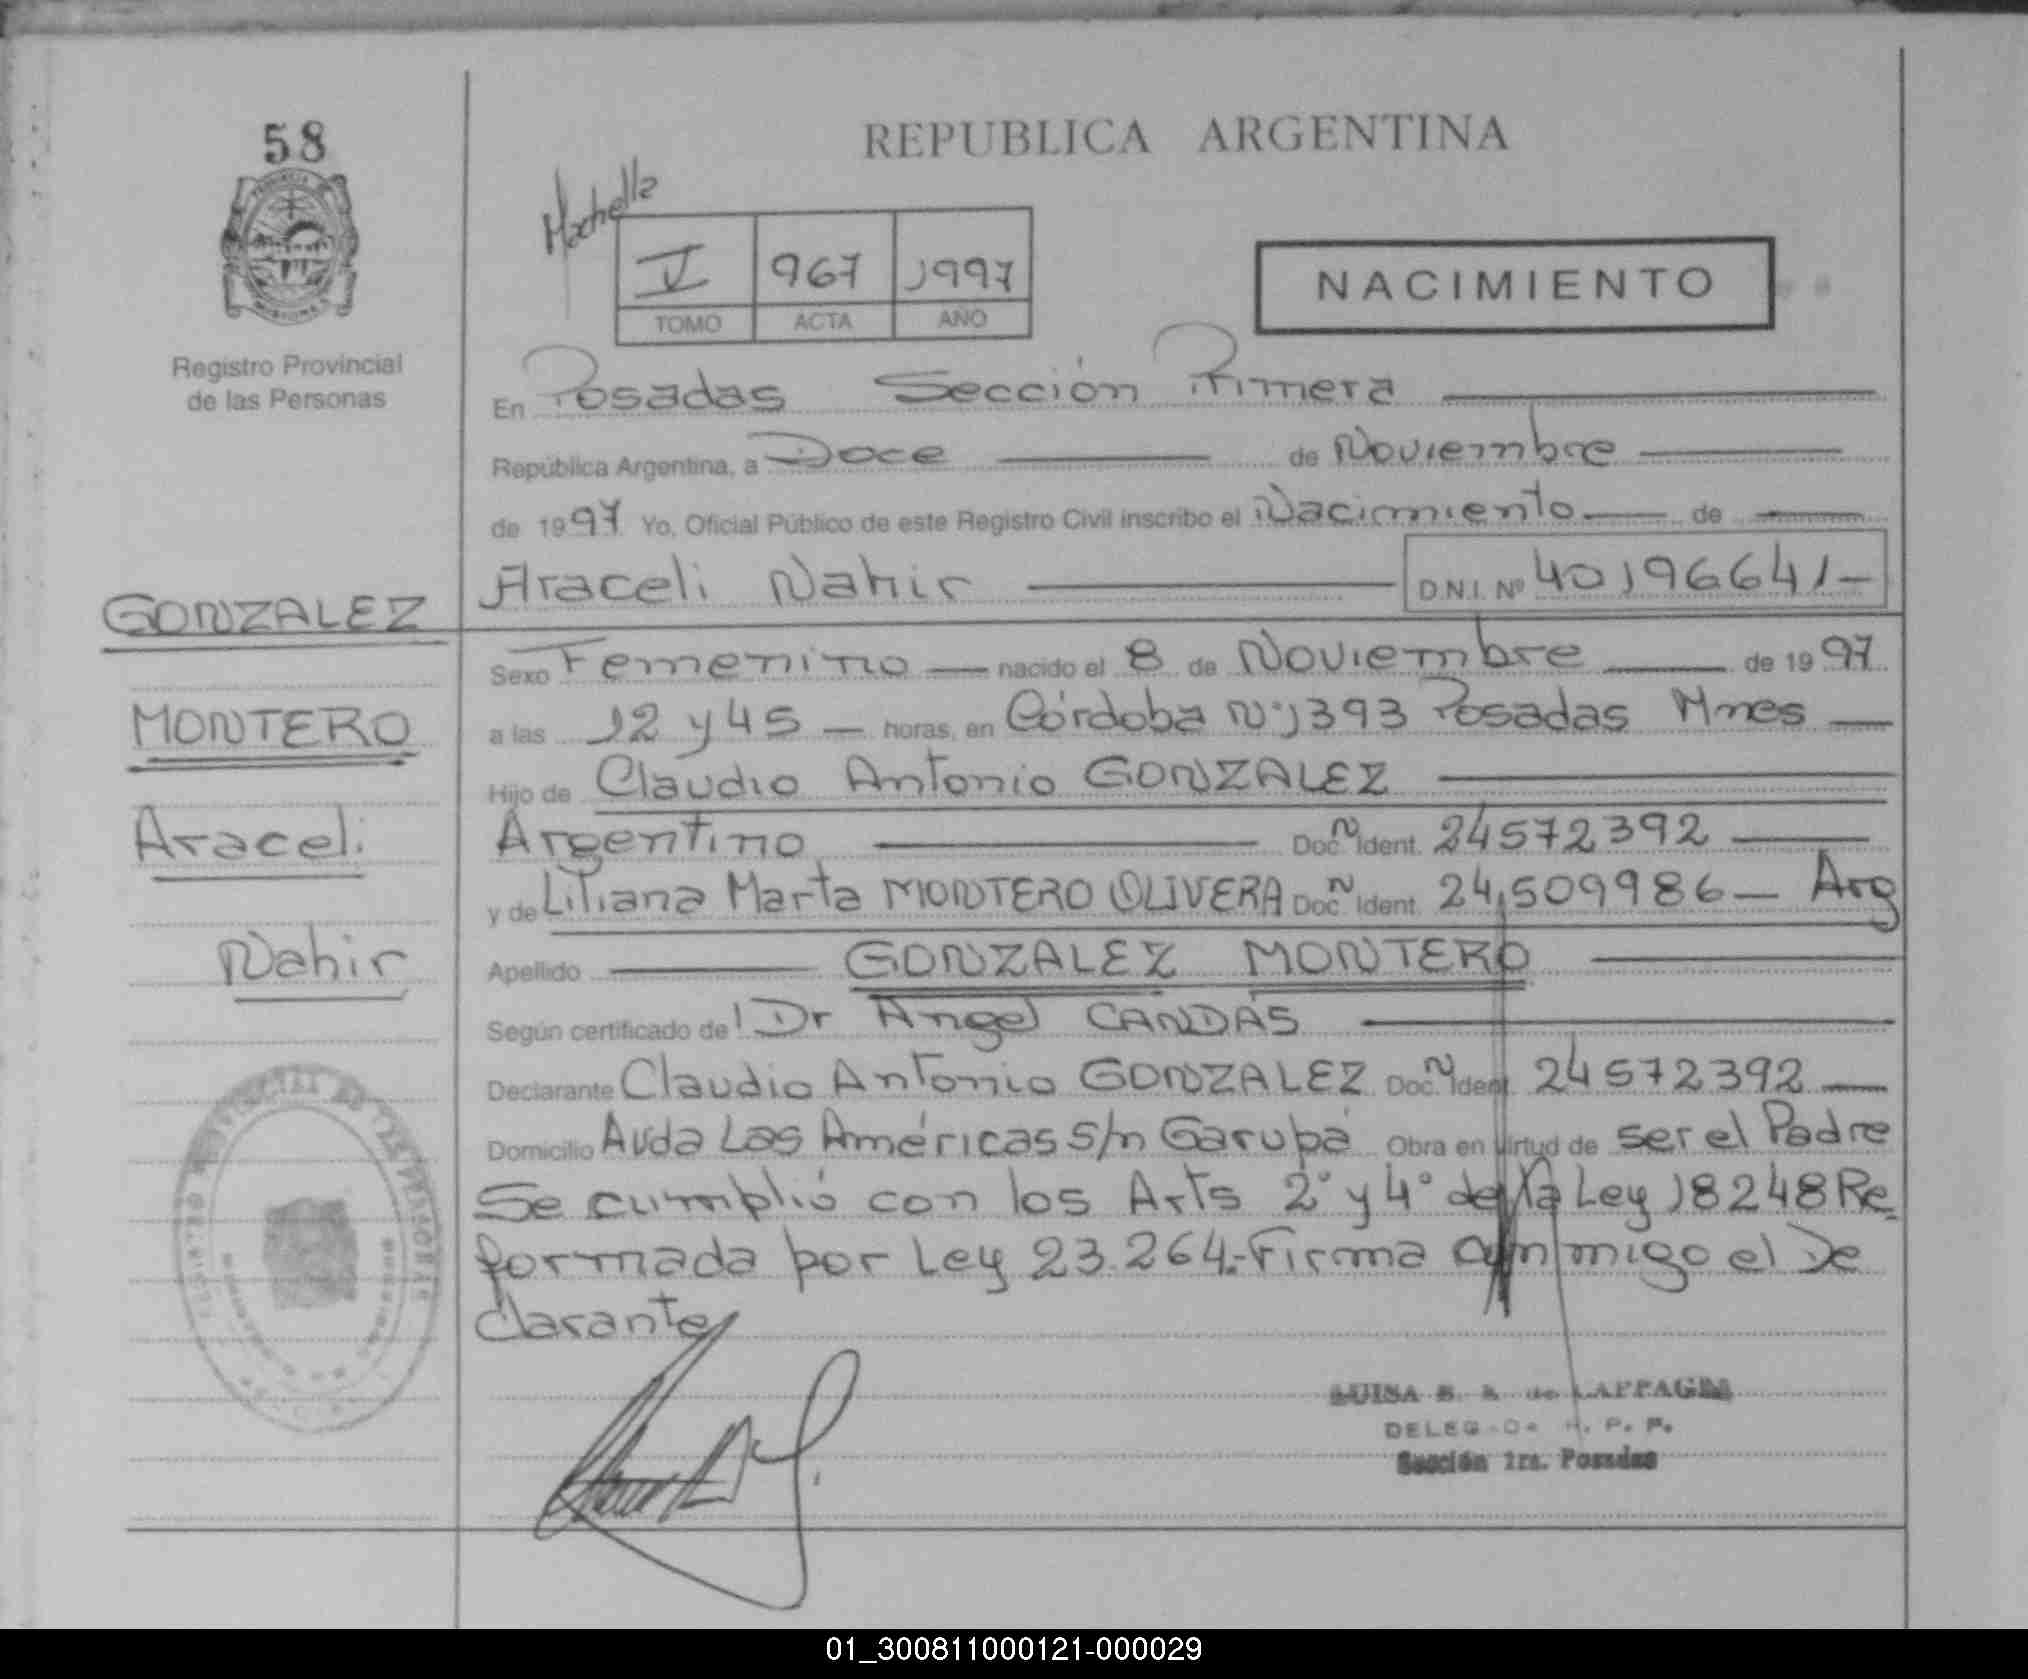 58
Registro Provincial
de las Personas
REPUBLICA ARGENTINA
V 967 1997
TOMO ACTA AÑO
NACIMIENTO
En Posadas Sección Primera
República Argentina, a Doce de Noviembre
de 1997 Yo, Oficial Público de este Registro Civil inscribo el Nacimiento de
Araceli Nahir D.N.I. Nº 40196641
GONZALEZ
MONTERO
Araceli
Nahir
Sexo Femenino nacido el 8 de Noviembre de 1997
a las 12 y 45 horas, en Córdoba Nº 1393 Posadas Mnes
Hijo de Claudio Antonio GONZALEZ
Argentino Doc. N Ident. 24572392
y de Liliana Marta MONTERO OLIVERA Doc. N Ident. 24.509986 Arg
Apellido GONZALEZ MONTERO
Según certificado de Dr Angel CANDAS
Declarante Claudio Antonio GONZALEZ Doc. N Ident. 24572392
Domicilio Avda Las Américas s/n Garupá Obra en virtud de ser el Padre
Se cumplió con los Arts 2° y 4° de la Ley 18248 Re
formada por Ley 23.264.- Firma conmigo el De
clarante
LUISA
Sección 1ra. Posadas
01_300811000121-000029